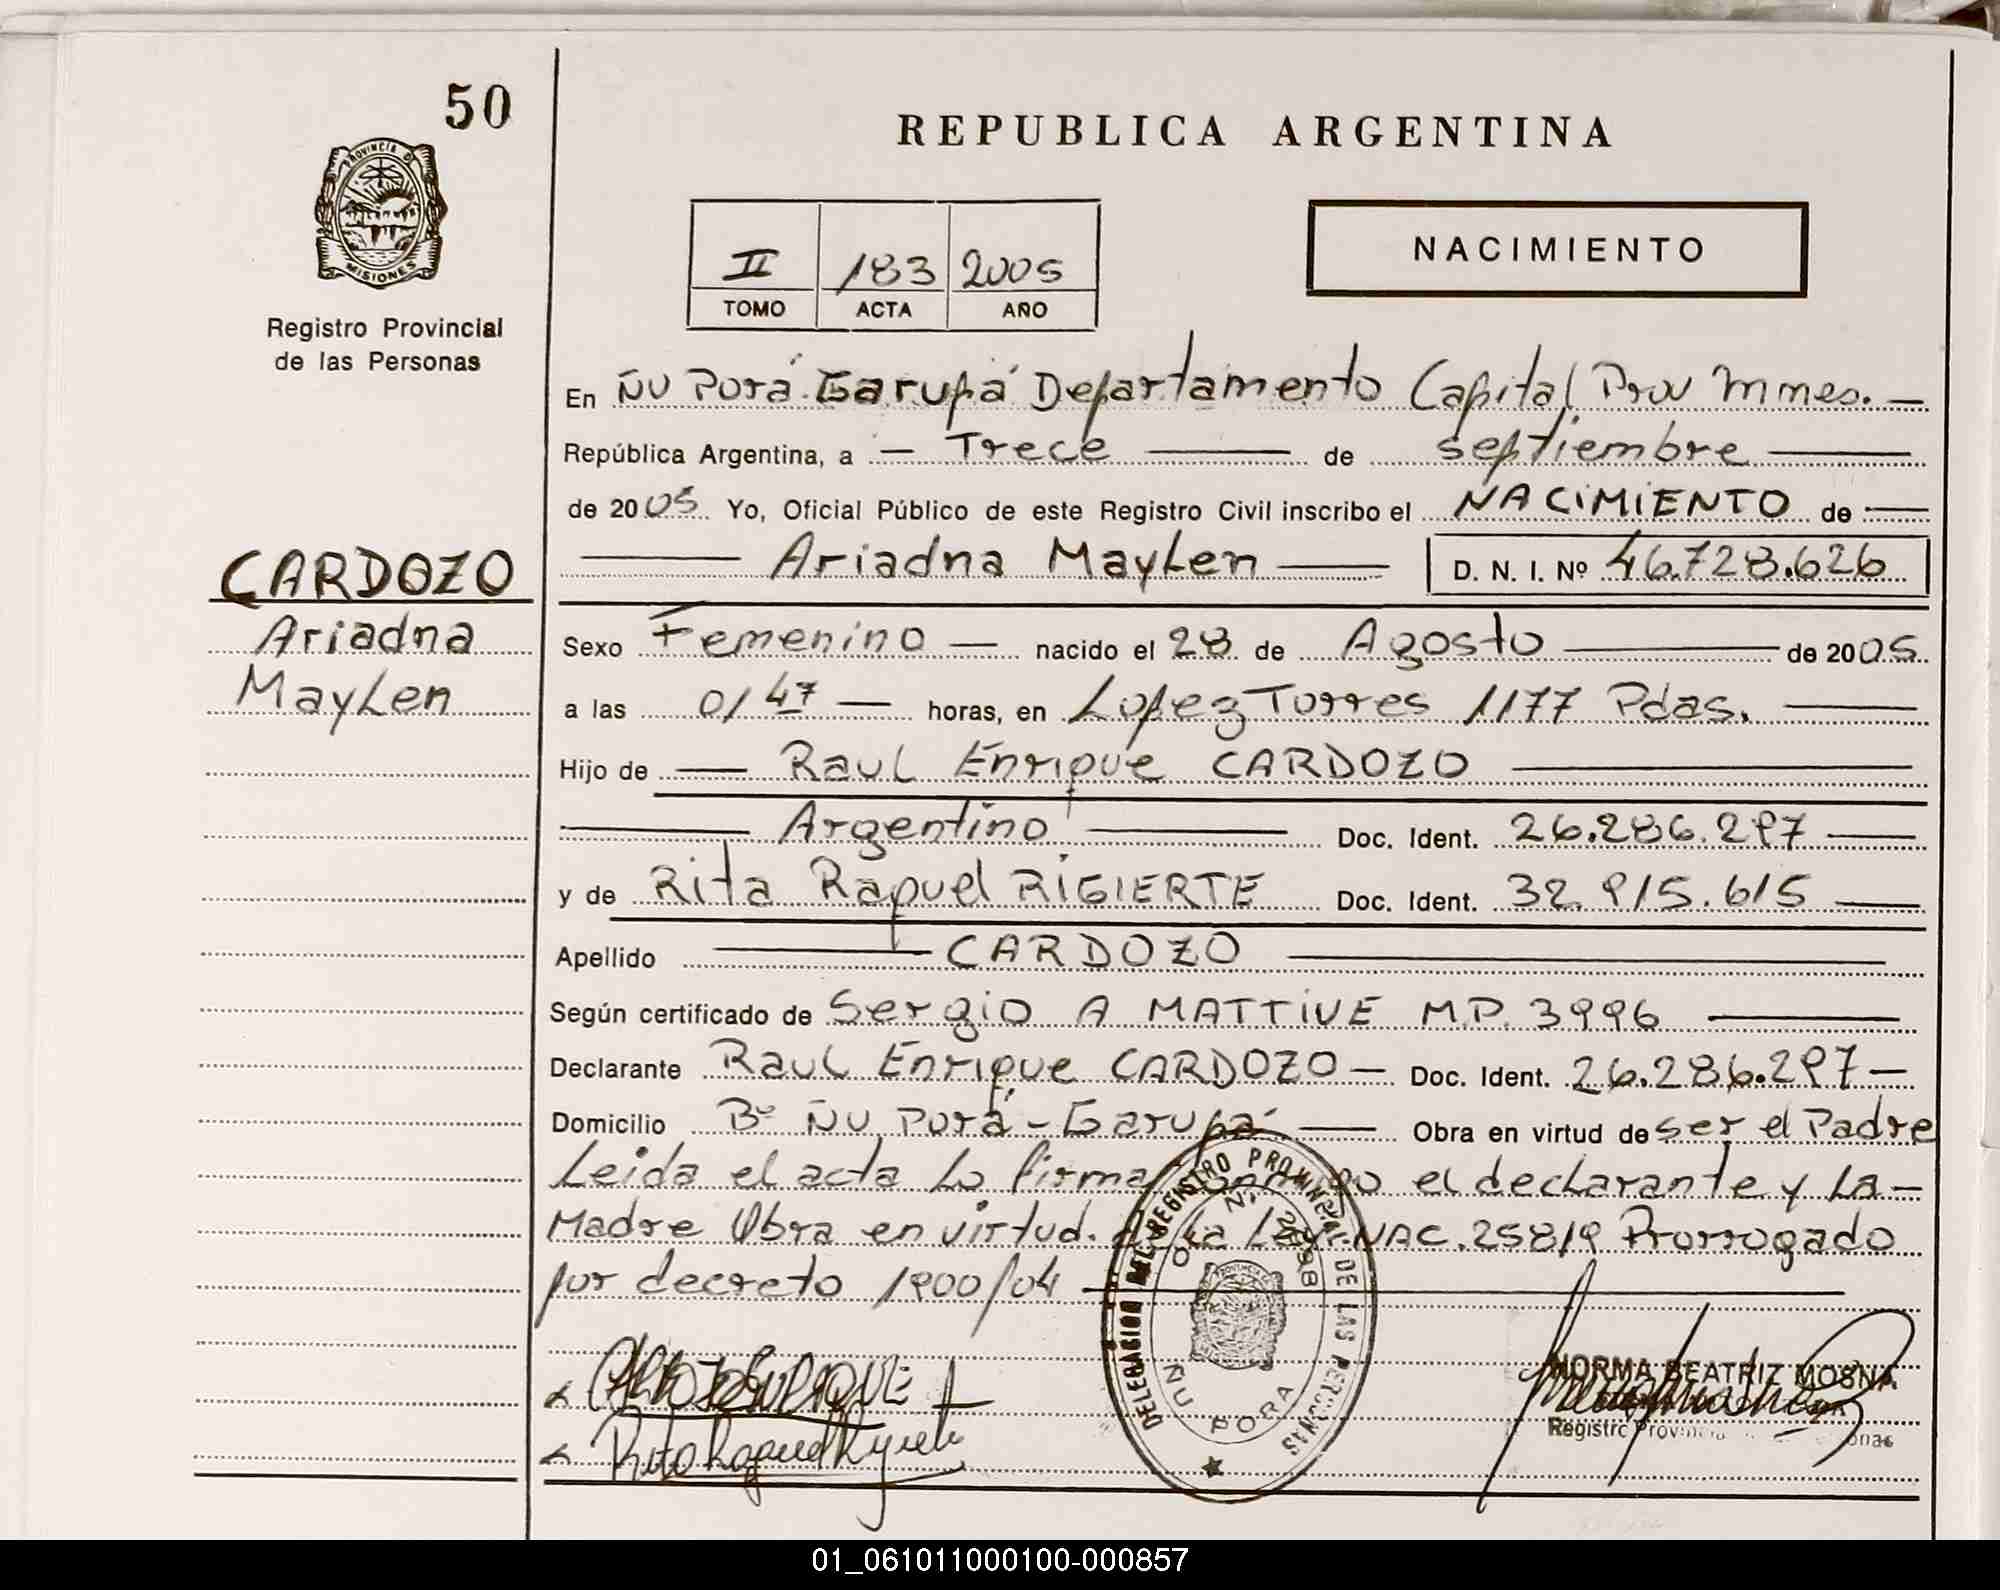 50
REPUBLICA ARGENTINA
PROVINCIA DE
MISIONES
Registro Provincial
de las Personas
II 183 2005
TOMO ACTA AÑO
NACIMIENTO
En Ñu Porá Garupá Departamento Capital Prov Mnes. —
República Argentina, a — Trece — de septiembre —
de 2005 Yo, Oficial Público de este Registro Civil inscribo el NACIMIENTO de —
— Ariadna MayLen — D. N. I. Nº 46.728.626
CARDOZO
Ariadna
MayLen
Sexo Femenino — nacido el 28 de Agosto — de 2005
a las 01 47 — horas, en Lopez Torres 1177 Pdas. —
Hijo de — Raul Enrique CARDOZO —
— Argentino — Doc. Ident. 26.286.297 —
y de Rita Raquel RIGIERTE Doc. Ident. 32.915.615 —
Apellido — CARDOZO —
Según certificado de Sergio A MATTIVE M.P. 3996 —
Declarante Raul Enrique CARDOZO — Doc. Ident. 26.286.297 —
Domicilio Bº Ñu Porá - Garupá — Obra en virtud de ser el Padre
Leida el acta Lo firma conmigo el declarante y La —
Madre Obra en virtud. de La Ley NAC. 25819 Prorrogado
por decreto 1900/04 —
DELEGACION DEL REGISTRO PROVINCIAL DE LAS PERSONAS
ÑU PORA
NORMA BEATRIZ MOSNA
Registro Provincial
01_061011000100-000857